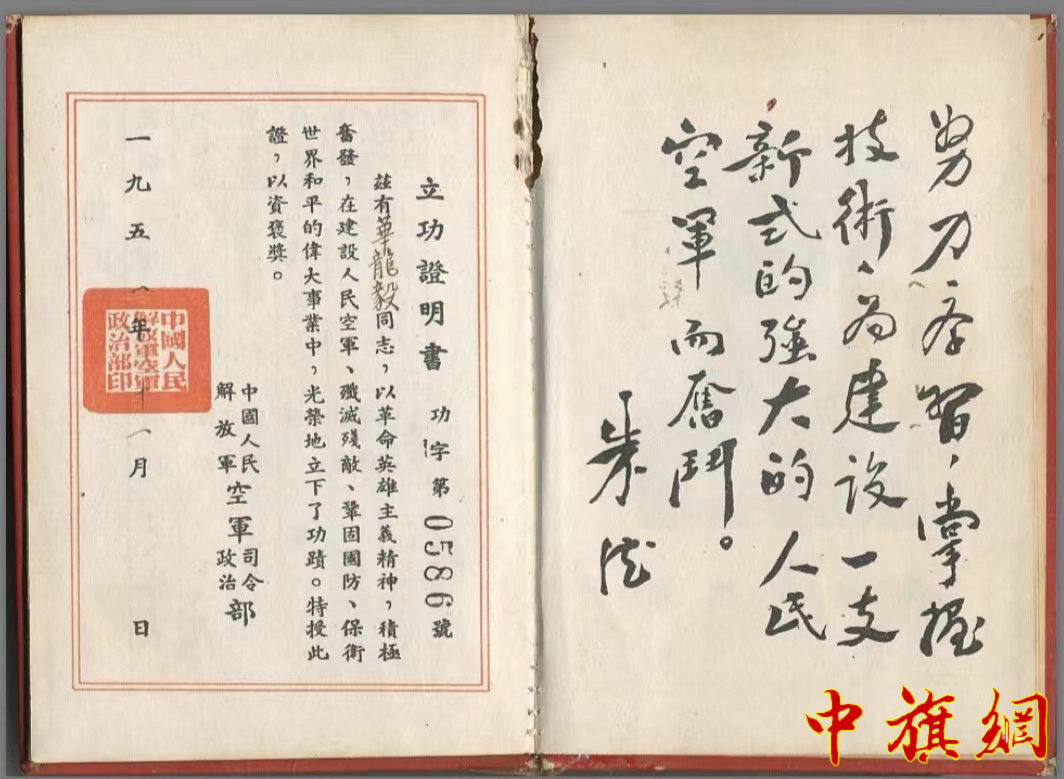 努力学習、掌握
技術、为建設一支
新式的強大的人民
空軍而奮鬥。
朱德
立功證明書 功字第0586號
茲有華龍毅同志，以革命英雄主義精神，積極
奮發，在建設人民空軍、殲滅殘敵、鞏固國防、保衛
世界和平的偉大事業中，光榮地立下了功蹟。特授此
證，以資褒獎。
中國人民
解放軍
空軍
司令
政治
部
一九五 年 月 日
中國人民
解放軍空軍
政治部印
中旗網